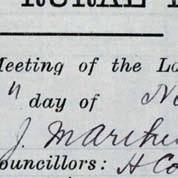 RURAL
Meeting of the Lo
" day of No
J. Marshe
ouncillors: H Co